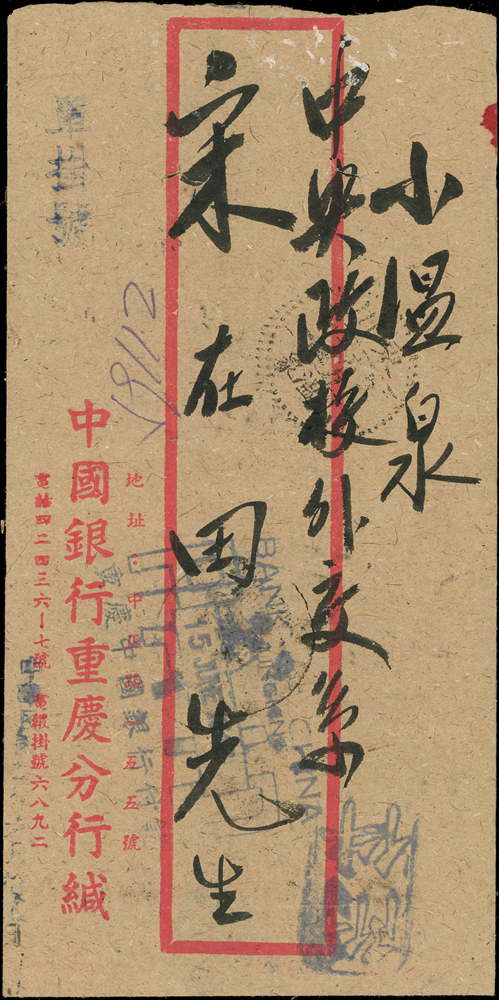 小溫泉
中央政校外交系
宋在田先生
地址·中
一五五號
中國銀行重慶分行緘
電話四二四三六—七號 電報掛號六八九二
單掛號
19112
BANK
CHINA
15 JUN
重慶中國銀行